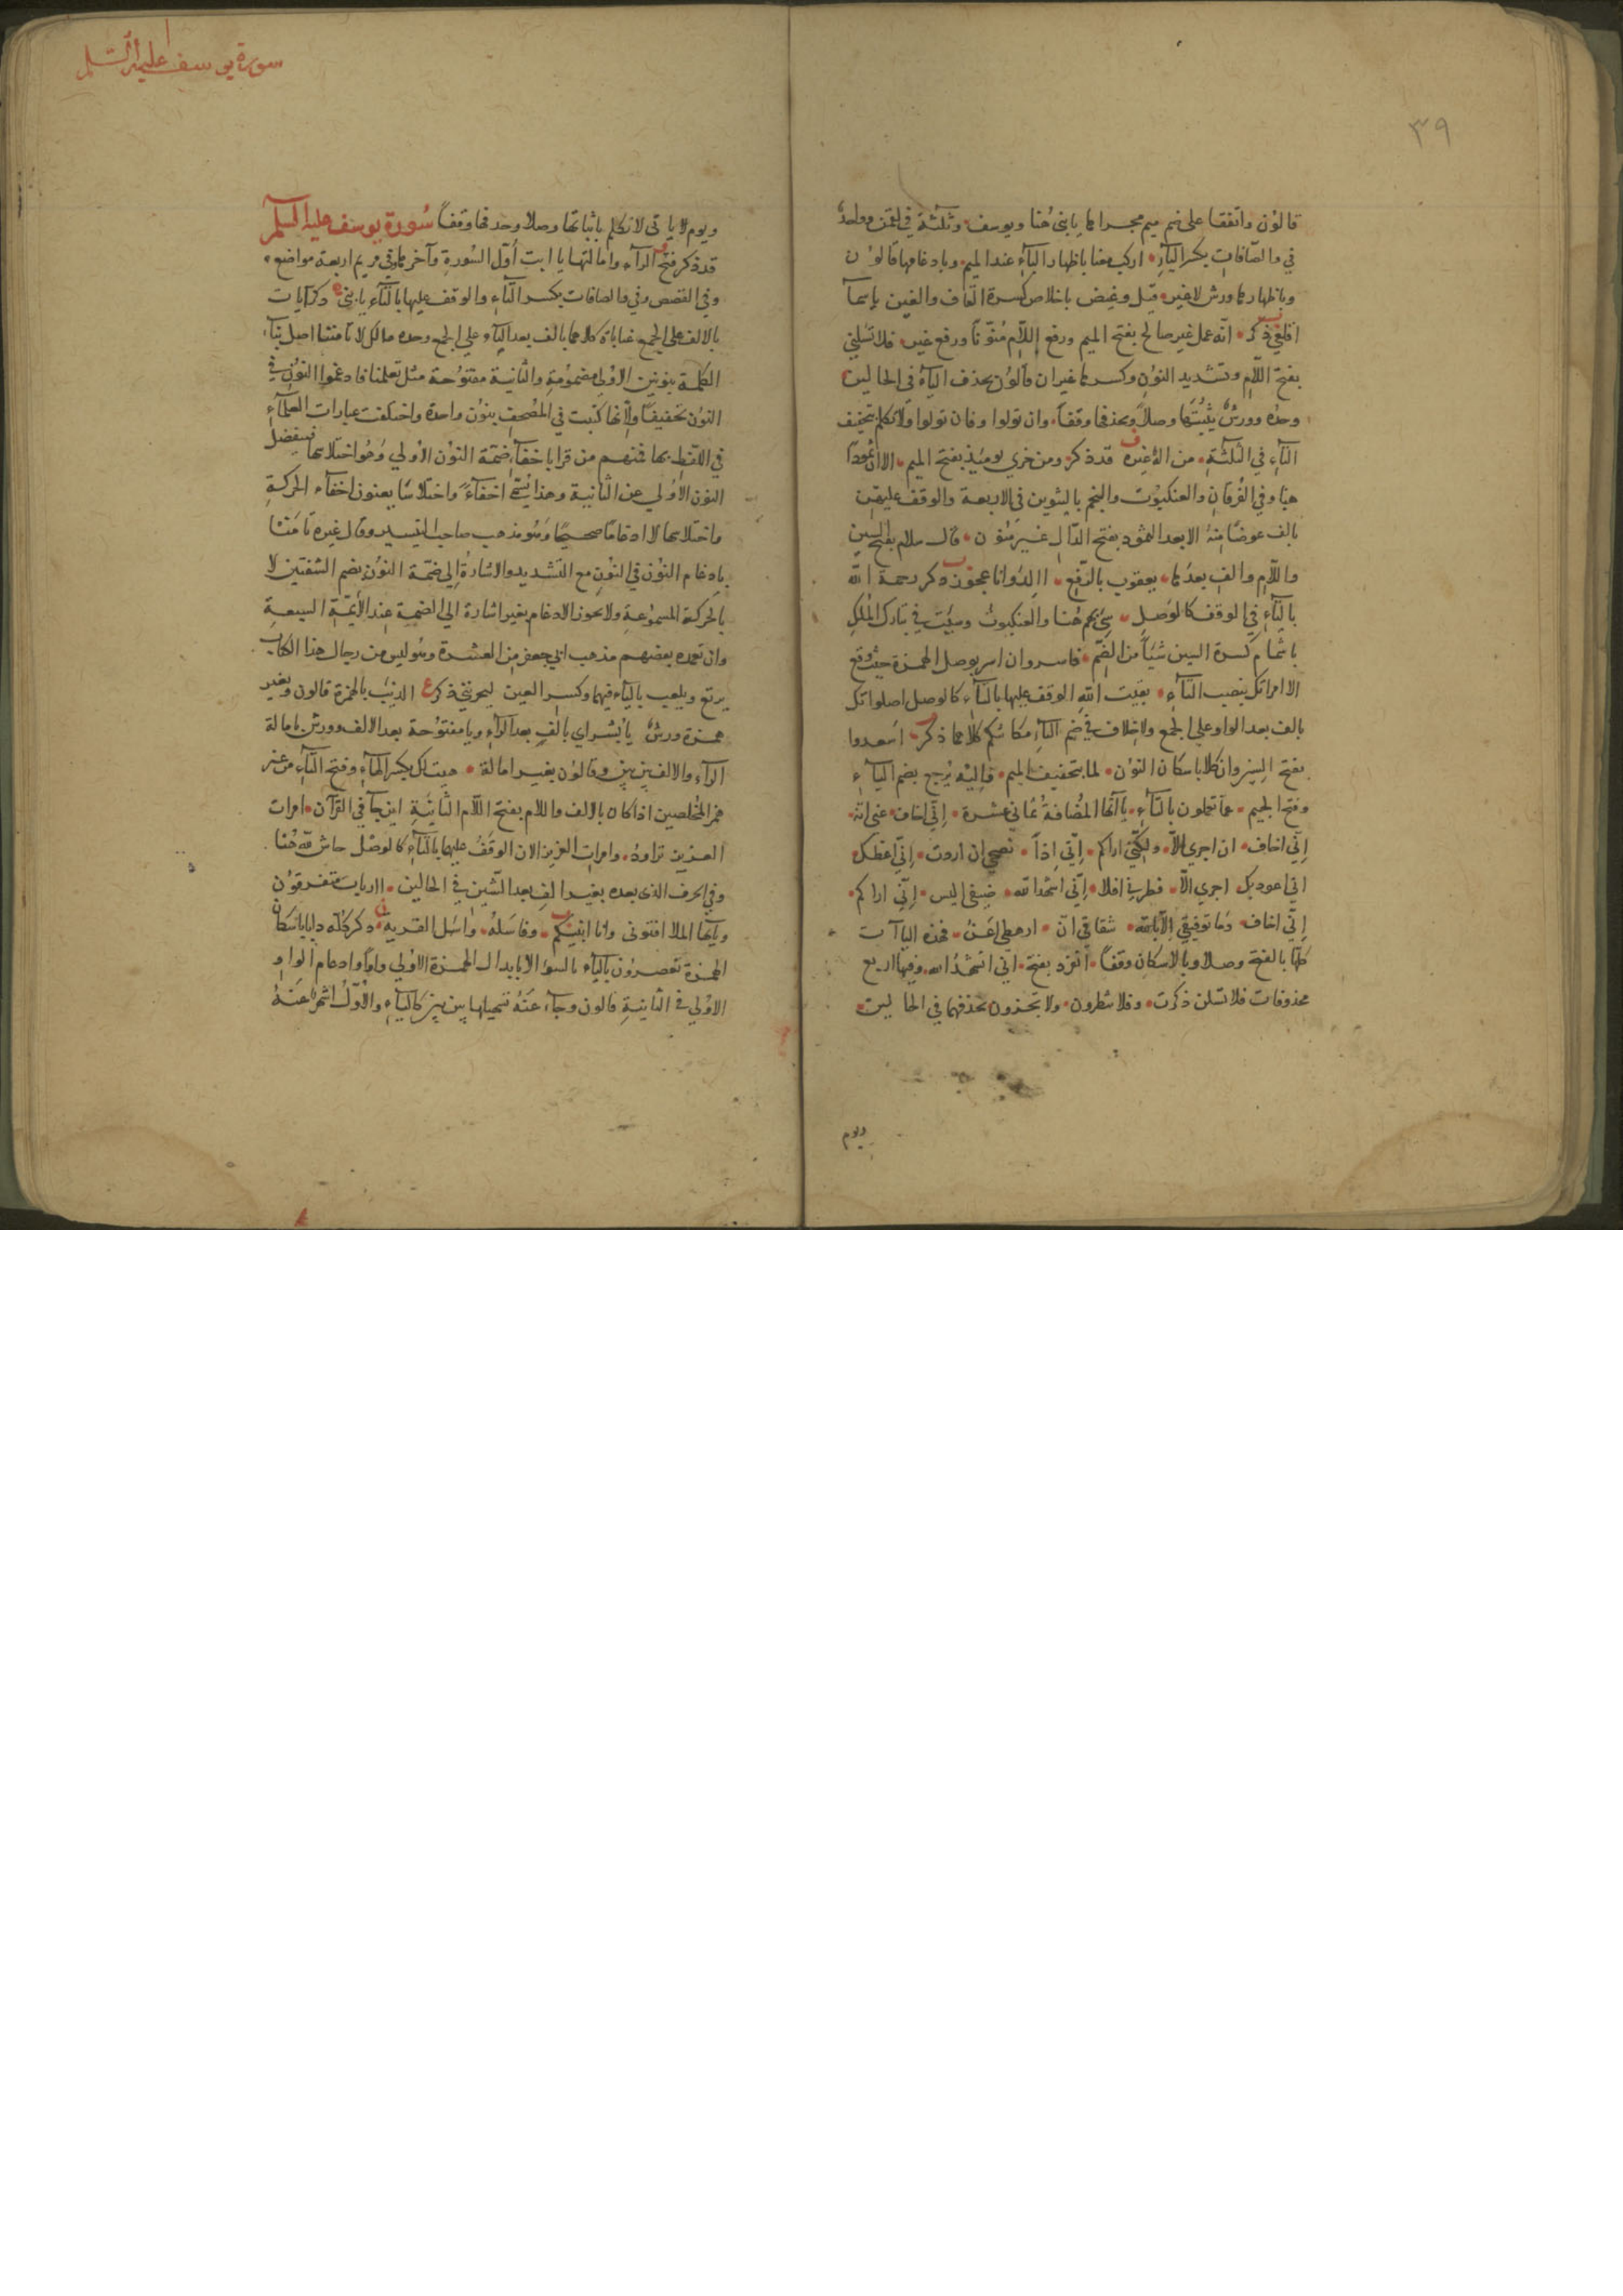 ٣٩
قالون واتفقا على ضم ميم مجراها يا بني هنا ويوسف وثلثة في لقمن وواحد
في والصافات بكسر الياء اركب معنا باظهار الباء عند الميم وبادغامها قالون
وباظهارها ورش لاغير قيل وغيض باخلاص كسرة القاف والغين ياسماء
اقلعي ذكر انه عمل غير صالح بفتح الميم ورفع اللام منونا ورفع غير فلا تسئلني
بفتح اللام وتشديد النون وكسرها غير ان قالون بحذف الياء في الحالين
وحده وورش يثبتها وصلا ويحذفها وقفا وان تولوا وفان تولوا ولا تكلم بتخفيف
التاء في الثلثة من اله غيره قد ذكر ومن خزي يومئذ بفتح الميم الا ان ثمودا
هنا وفي الفرقان والعنكبوت والنجم بالتنوين في الاربعة والوقف عليهن
بالف عوضا منه الا بعدا لثمود بفتح الدال غير منون قال سلام بفتح السين
واللام والف بعدها يعقوب بالرفع االد وانا عجوز ذكر رحمة الله
بالتاء في الوقف كالوصل سيء بهم هنا والعنكبوت وسيئت في تبارك الملك
باشمام كسرة السين شيأ من الضم فاسر وان اسر بوصل الهمزة حيث وقع
الا امراتك بنصب التاء بقيت الله الوقف عليها بالتاء كالوصل اصلواتك
بالف بعد الواو على الجمع ولاخلاف في ضم التاء مكانتكم كلاهما ذكر سعدوا
بفتح السين وان كلا باسكان النون لما بتخفيف الميم واليه يرجع بضم الياء
وفتح الجيم عما تعملون بالتاء ياآتها المضافة ثماني عشرة اني اخاف عني انه
اني اخاف ان اجري الا ولكني اراكم اني اذا نصحي ان اردت اني اعظك
اني اعوذ بك اجري الا فطرني افلا اني اشهد الله ضيفي اليس اني اراكم
اني اخاف وما توفيقي الا بالله شقاقي ان ارهطي اعز فهذه الياآت
كلها بالفتح وصلا وبالاسكان وقفا انفرد بفتح اني اشهد الله وفيها اربع
محذوفات فلا تسئلن ذكرت وفلا تنظرون ولا تخزون بحذفهما في الحالين
ويوم
سورة يوسف عليه السلم
ويوم لا ياتي لا تكلم باثباتها وصلا وحذفها وقفا سورة يوسف عليه السلم
قد ذكر فتح الراء وامالتها يا ابت اول السورة وآخرها وفي مريم اربعة مواضع
وفي القصص وفي والصافات بكسر التاء والوقف عليها بالتاء يا بني ذكر آيات
بالالف على الجمع غيابات كلاهما بالف بعد الباء على الجمع وحده مالك لا تامننا اصل بناء
الكلمة بنونين الاولى مضمومة والثانية مفتوحة مثل تعلمنا فادغموا النون في
النون تخفيفا ولانها كتبت في المصحف بنون واحدة واختلفت عبارات العلماء
في اللفظ بها فمنهم من قرا باخفاء ضمة النون الاولى وهو اختلاسها فيفضل
النون الاولى عن الثانية وهذا يسمى اخفاء واختلاسا يعنون اخفاء الحركة
واختلاسها لا ادغاما صحيحا وهو مذهب صاحب التيسير وقال غيره تامنا
بادغام النون في النون مع التشديد والاشارة الى ضمة النون بضم الشفتين لا
بالحركة المسموعة ولا يجوز الادغام بغير اشارة الى الضمة عند الائمة السبعة
وان تعمده بعضهم مذهب ابي جعفر من العشرة وهو ليس من رجال هذا الكتاب
يرتع ويلعب بالياء فيهما وكسر العين ليحزنني ذكر الذئب بالهمزة قالون وبغير
همزة ورش يا بشراي بالف بعد الراء وياء مفتوحة بعد الالف وورش بامالة
الراء والالف بين بين وقالون بغير امالة هيت لك بكسر الهاء وفتح التاء من غير
همز المخلصين اذا كان بالالف واللام بفتح اللام الثانية اين جا في القرآن امرات
العزيز تراود وامرات العزيز الان الوقف عليها بالتاء كالوصل حاش لله هنا
وفي الحرف الذي بعده بغير الف بعد الشين في الحالين اارباب متفرقون
ويايها الملا افتوني وانا انبئكم وفاسله واسئل القرية ذكر كله دابا باسكان
الهمزة تعصرون بالياء بالسوء الا بابدال الهمزة الاولى واوا وادغام الواو
الاولى في الثانية قالون وجاء عنه تسهيلها بين بين كالياء والاول اشهر عنه